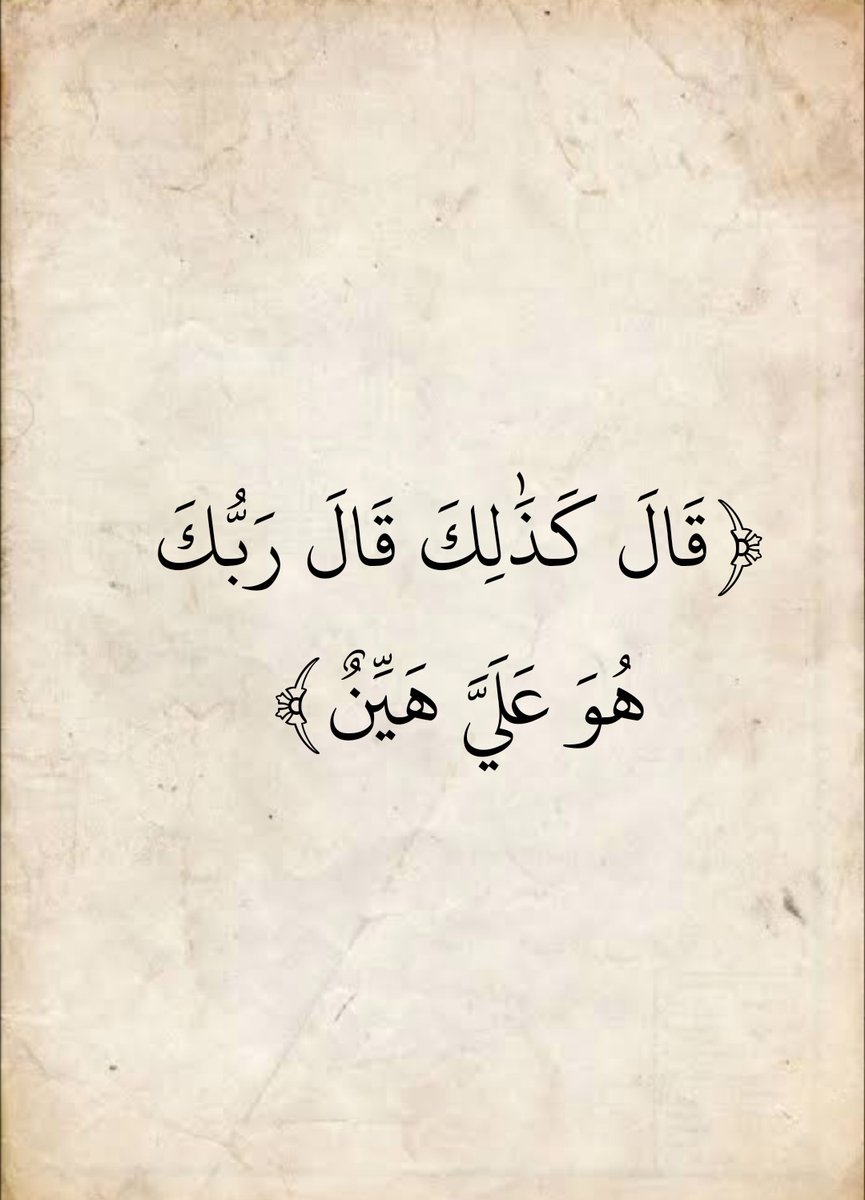 ﴿قَالَ كَذَٰلِكَ قَالَ رَبُّكَ
هُوَ عَلَيَّ هَيِّنٌ﴾